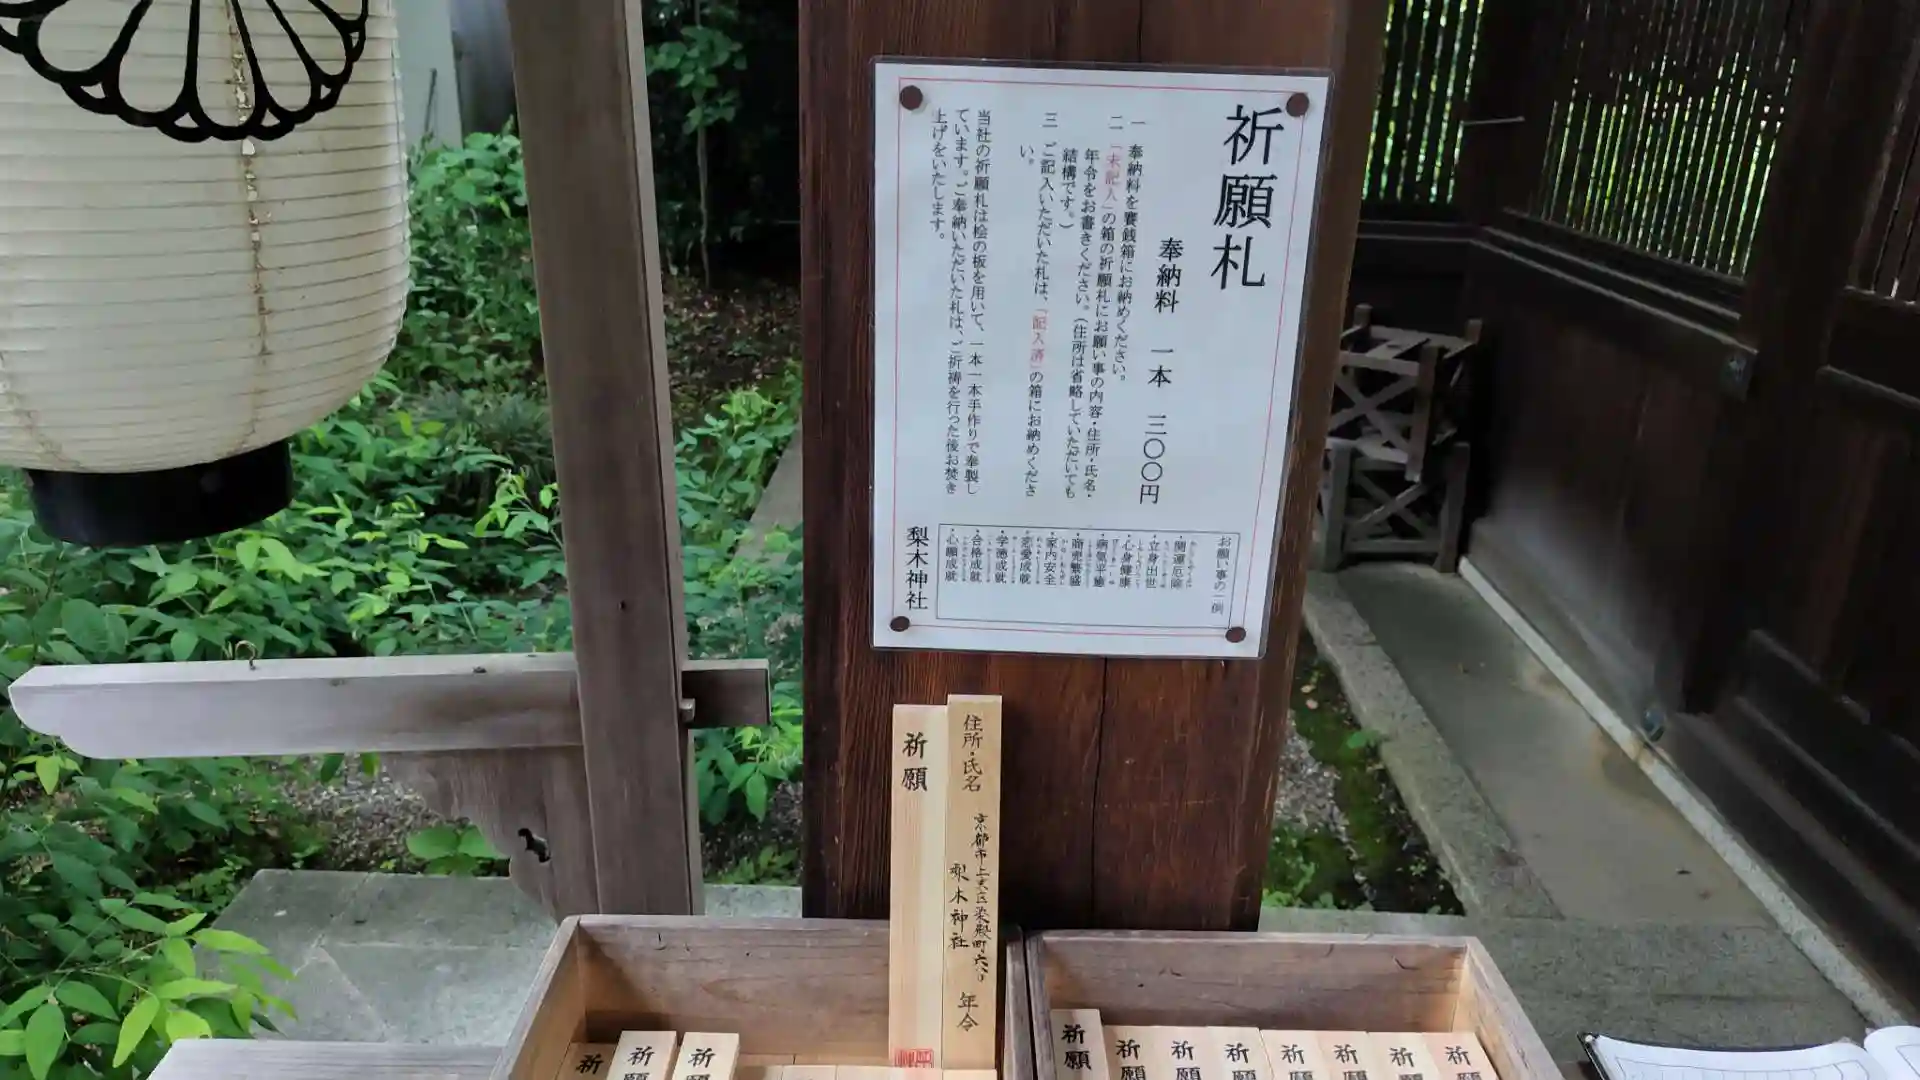 祈願札
奉納料 一本 三〇〇円
一 奉納料を賽銭箱にお納めください。
二 「未記入」の箱の祈願札にお願い事の内容・住所・氏名・
年令をお書きください。（住所は省略していただいても
結構です。）
三 ご記入いただいた札は、「記入済」の箱にお納めくださ
い。
当社の祈願札は桧の板を用いて、一本一本手作りで奉製し
ています。ご奉納いただいた札は、ご祈祷を行った後お焚き
上げをいたします。
お願い事の一例
・開運厄除
・立身出世
・心身健康
・病気平癒
・商売繁盛
・家内安全
・恋愛成就
・学徳成就
・合格成就
・心願成就
梨木神社
住所・氏名
京都市上京区染殿町六八〇
梨木神社
年令
祈願
祈
祈願
祈願
祈願
祈願
祈願
祈願
祈願
祈願
祈願
祈願